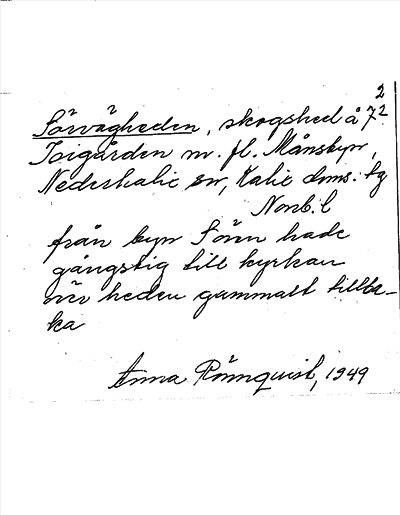 2
Sörvägheden, skogshed å 72
Torigården m. fl. Månsbyn,
Nederkalix sn, Kalix doms. hg
Norrb. l
från byn Sören hade
gångstig till kyrkan
över heden gammalt tillba-
ka
Anna Rönnquist, 1949